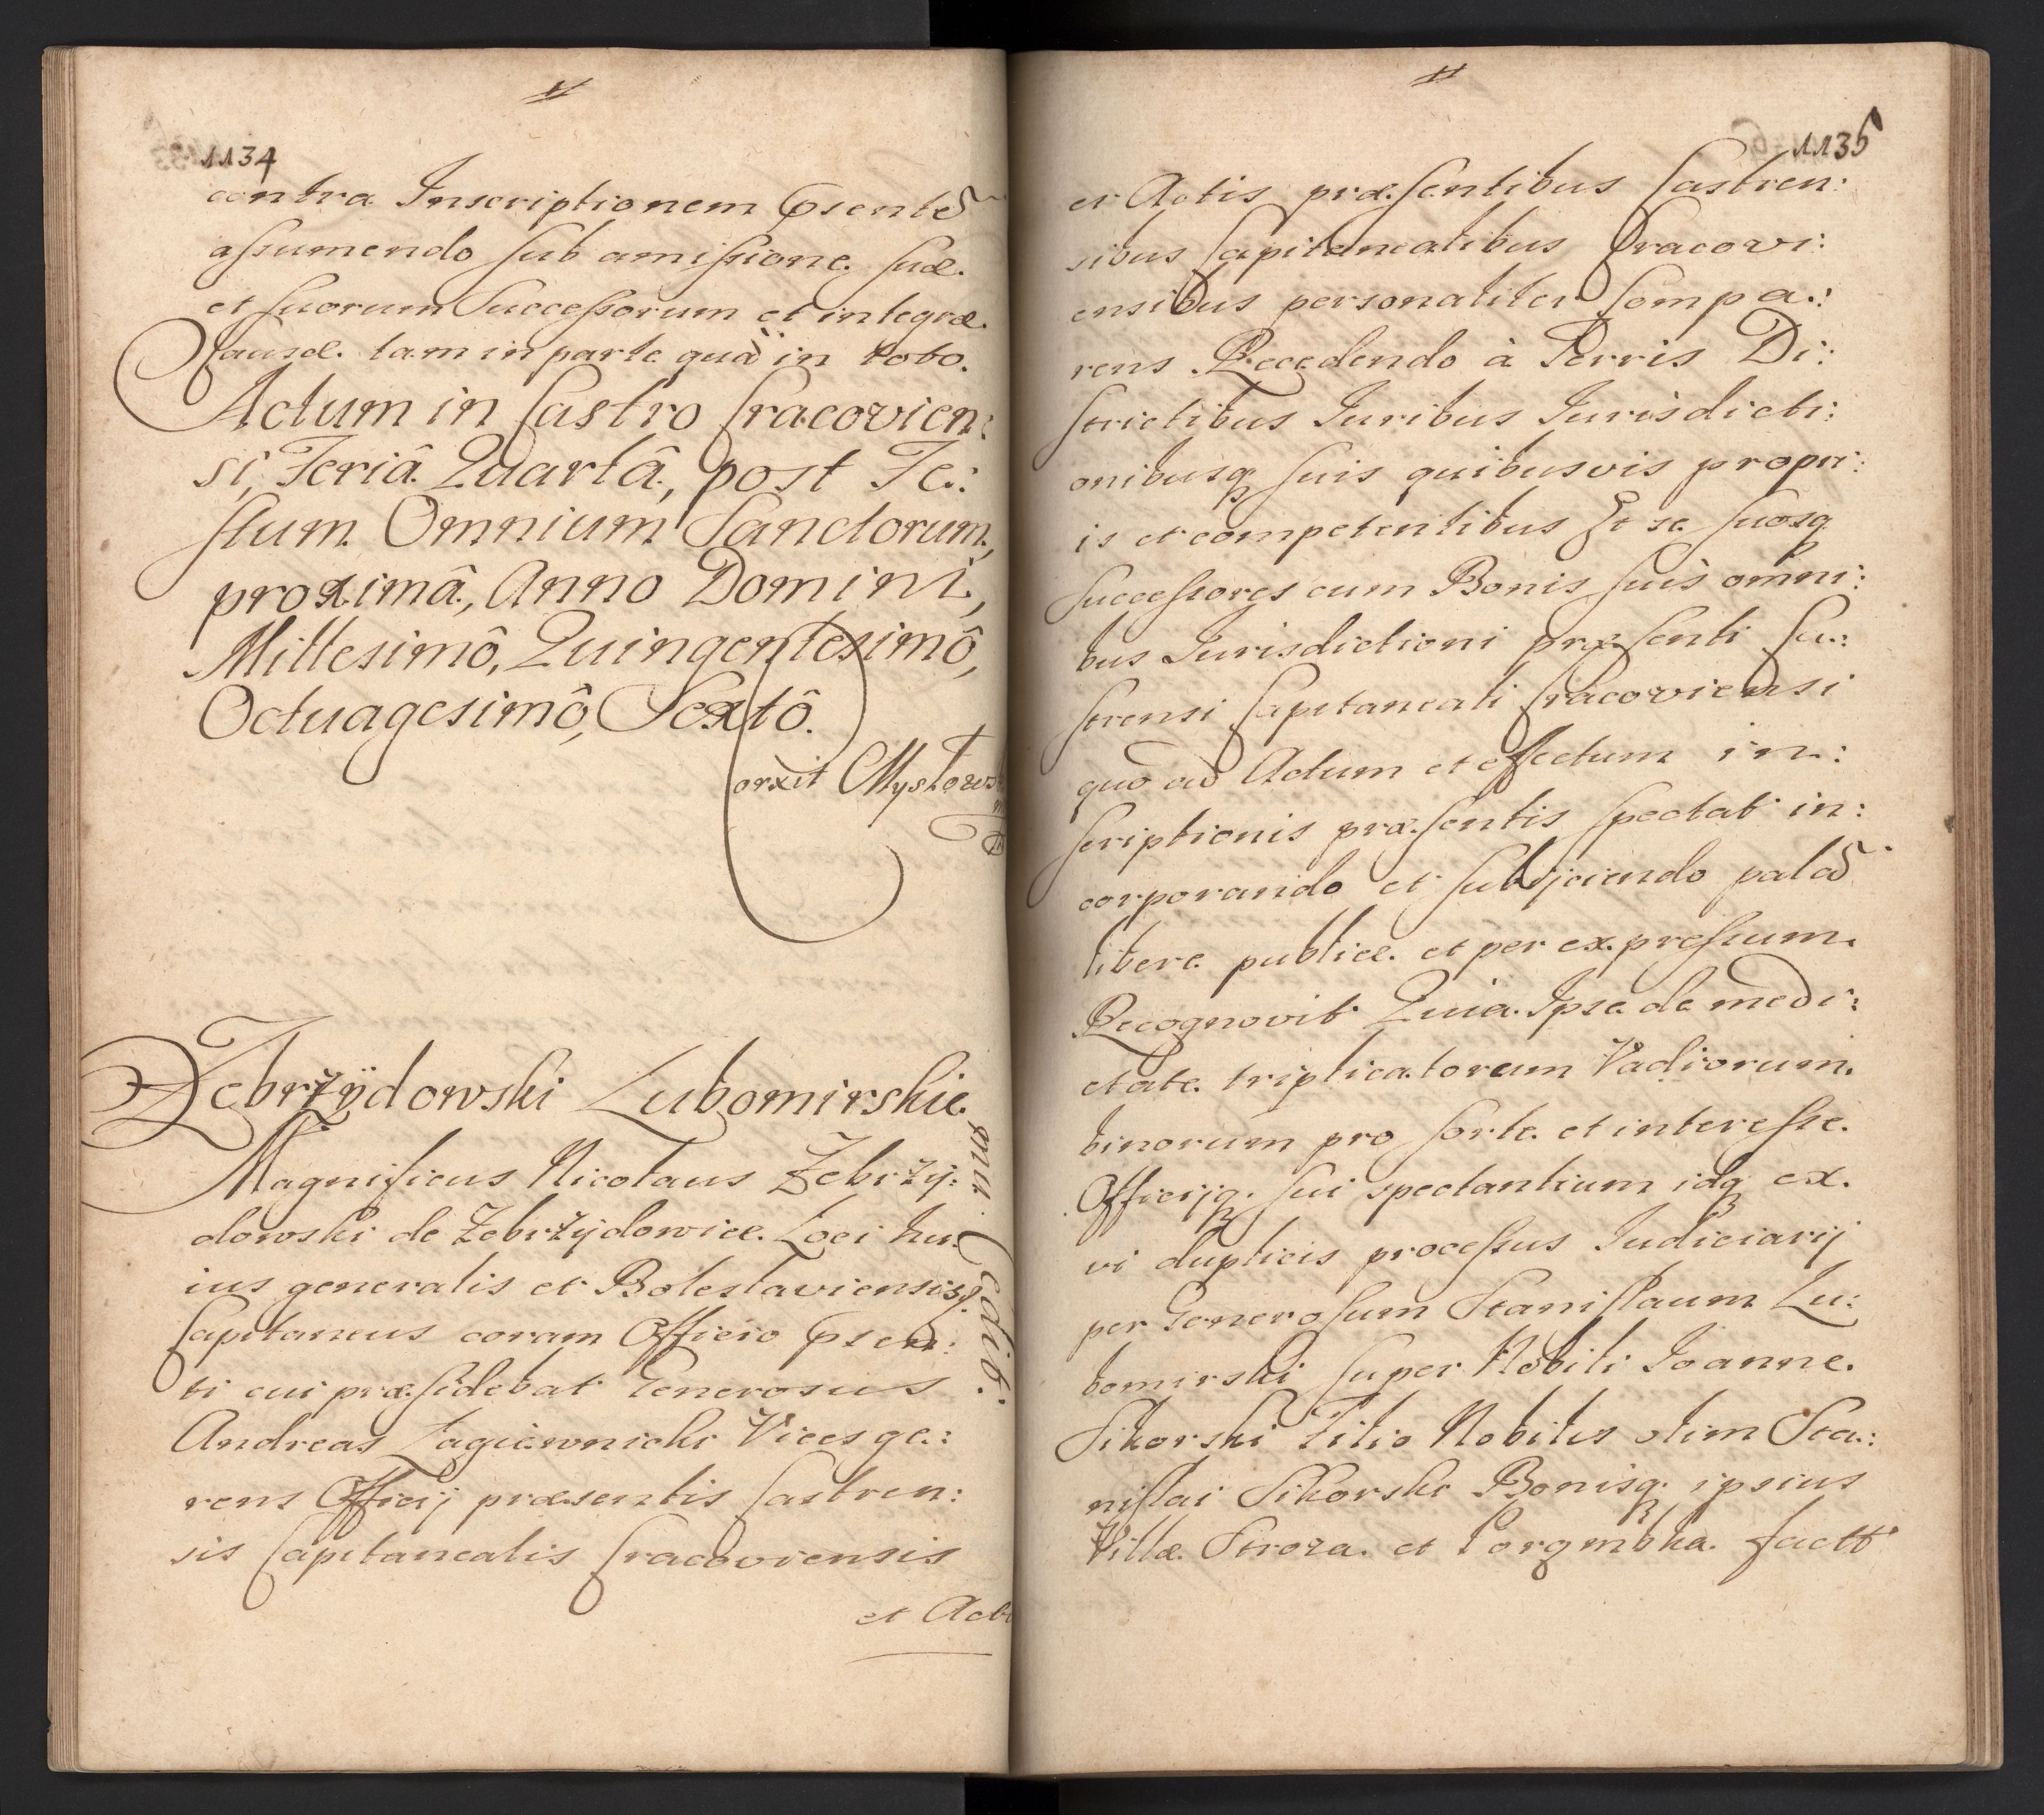 1134
contra Inscriptionem p̄sentē
assumendo sub amissione suæ
et suorum Successorum et integræ
Causæ tam in parte quà in toto.
Actum in Castro Cracovien:
si, Feriâ Quartâ, post Fe:
stum Omnium Sanctorum,
proximâ, Anno Domini,
Millesimô, Quingentesimô,
Octuagesimô, Sextô.
Zebrzÿdowski Lubomirskie
Magnificus Nicolaus Zebrzy:
dowski de Zebrzydowice Loci hu:
ius generalis et Boleslaviensisq.
Capitaneus coram Officio p̄sen:
ti cui præsidebat Generosus
Andreas Lagiewnicki Vicesge:
rens Officij præsentis Castren:
sis Capitanealis Cracoviensis
et Acti
1135
et Actis præsentibus Castren:
sibus Capitanealibus Cracovi:
ensibus personaliter Compa:
rens Recedendo à Terris Di:
strictibus Iuribus Iurisdicti:
onibusq suis quibusvis propri:
is et competentibus Et se suosq
Successores cum Bonis suis omni:
bus Iurisdictioni præsenti Ca:
strensi Capitaneali Cracoviensi
quo ad Actum et effectum in:
scriptionis præsentis spectat in:
corporando et subijciendo palā
libere publice et per expressum
Recognovit Quia Ipse de medi:
etate triplicatorum Vadiorum
binorum pro sorte et interesse
Officijq. sui spectantium idq ex
vi duplicis processus Iudiciarij
per Generosum Stanislaum Lu:
bomirski super Nobili Ioanne
Sikorski Filio Nobilis olim Sta:
nislai Sikorski Bonisq. ipsius
Villæ Stroza et